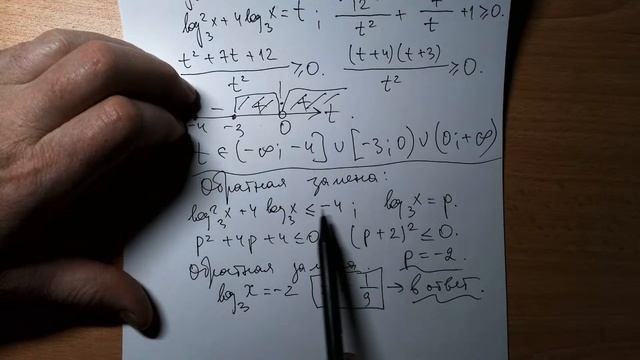 log₃²x + 4log₃x = t ; 12/t² + 7/t + 1 ≥ 0.
(t² + 7t + 12)/t² ≥ 0. (t+4)(t+3)/t² ≥ 0.
-4 -3 0 t
t ∈ (-∞; -4] ∪ [-3; 0) ∪ (0; +∞)
Обратная замена:
log₃²x + 4 log₃x ≤ -4 ; log₃x = p.
p² + 4p + 4 ≤ 0 (p+2)² ≤ 0.
Обратная замена. p = -2.
log₃x = -2 1/9 → в ответ.